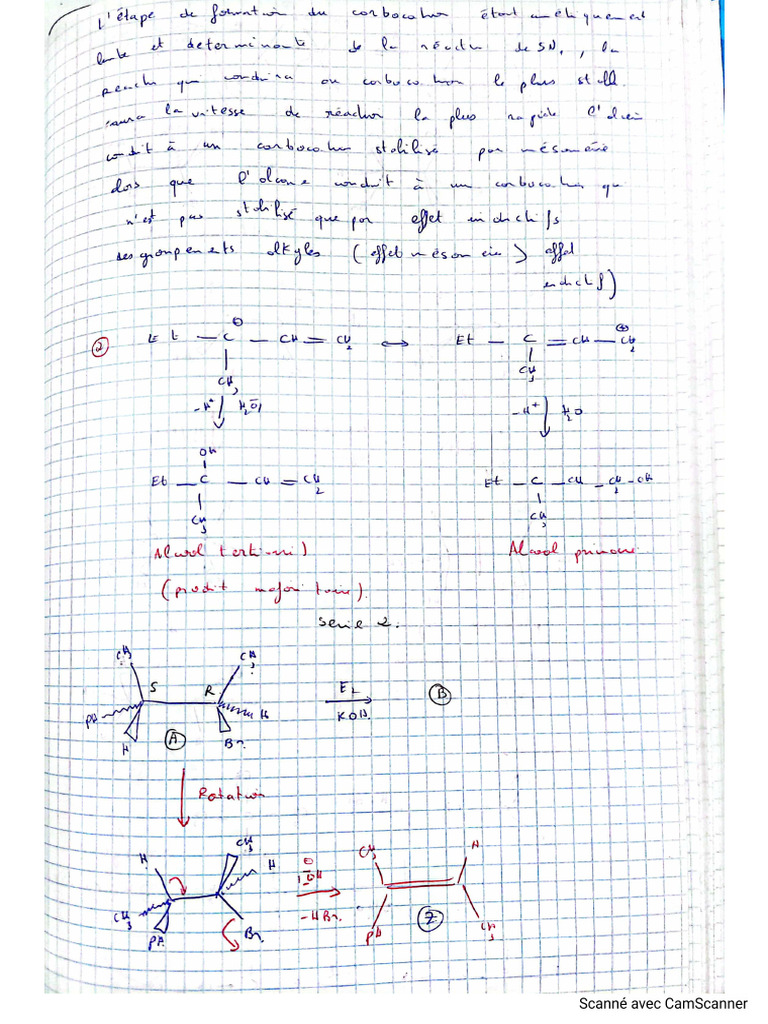 L'étape de formation du carbocation étant cinétiquement
lente et determinante de la réaction de SN1, la
qui conduira au carbocation le plus stable
aura la vitesse de réaction la plus rapide l'
conduit à un carbocation stabilisé par mésomérie
lors que l'alcane conduit à un carbocation qui
n'est pas stabilisé que par effet inductifs
des groupements alkyles (effet mésomérie) effet
inductif)
② Et — C⊕ — CH = CH2 ↔ Et — C = CH — CH2⊕
CH3 CH3
-H+ H2O -H+ H2O
OH
Et — C — CH = CH2 Et — C — CH — CH2 — OH
CH3 CH3
Alcool tertiaire) Alcool primaire
(produit majoritaire).
Serie 2.
CH3 CH3
S R E2 Ⓑ
Ph H KOH
H Ⓐ Br
Rotation
H CH3 H CH3 H
CH3 Ph Br - HBr Ph Ⓩ CH3
Scanné avec CamScanner